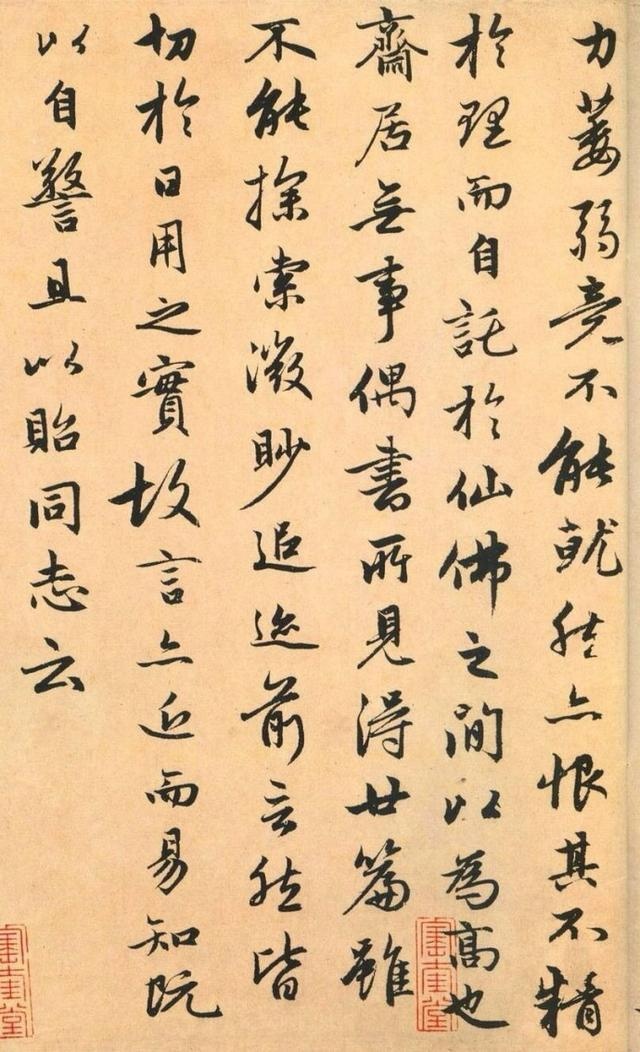 力萎弱竟不能就然亦恨其不精
於理而自託於仙佛之間以為高也
齋居無事偶書所見得廿篇雖
不能探索微眇追迹前言然皆
切於日用之實故言亦近而易知既
以自警且以貽同志云